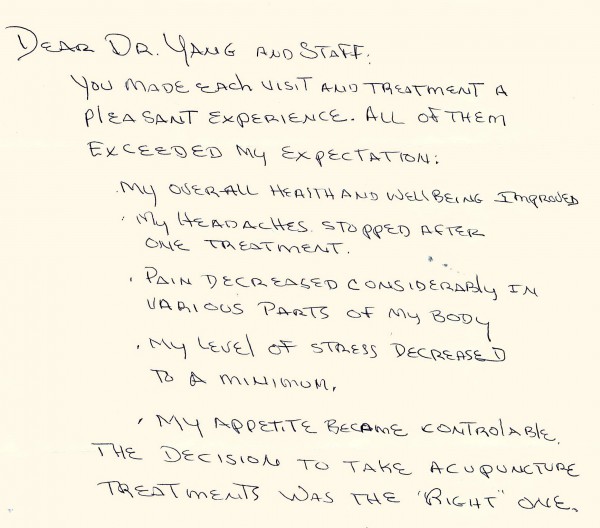 Dear Dr. Yang and Staff:
You made each visit and treatment a
pleasant experience. All of them
exceeded my expectation:
. My overall health and well being improved
. My headaches stopped after
one treatment.
. Pain decreased considerably in
various parts of my body
. My level of stress decreased
to a minimum.
. My appetite became controlable.
The decision to take acupuncture
treatments was the "right" one.